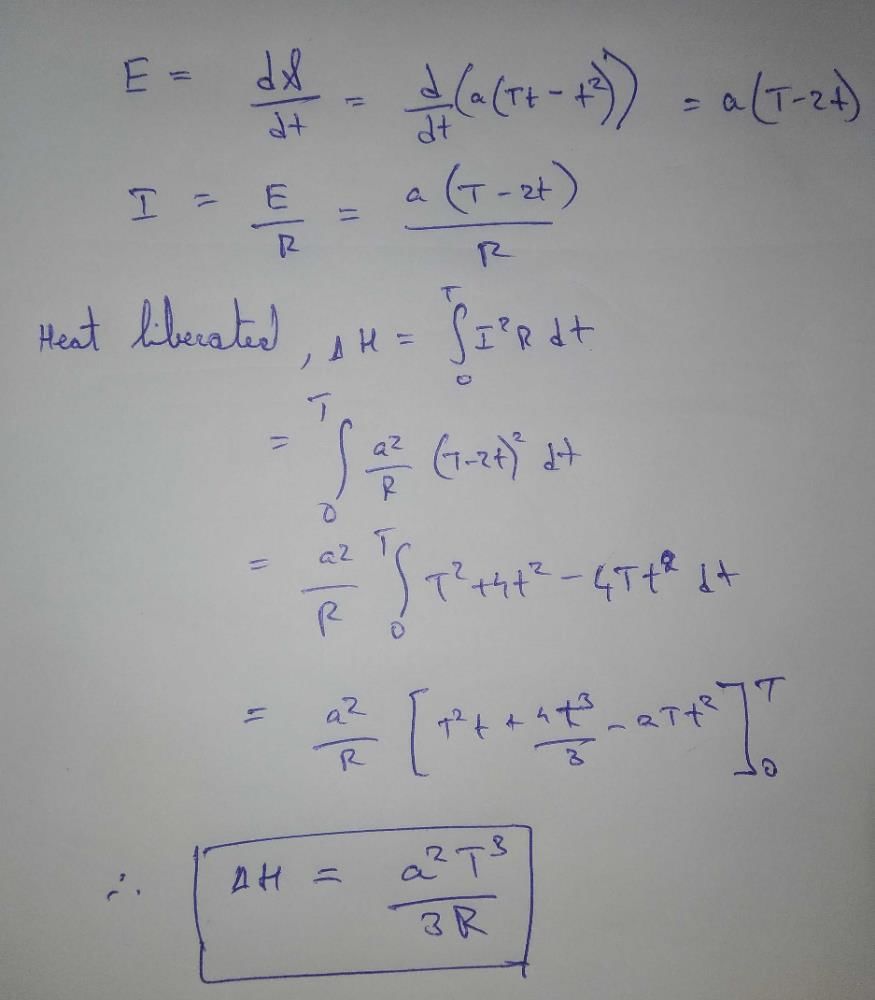 E = dϕ/dt = d/dt (a(Tt - t²)) = a(T-2t)
I = E/R = a(T-2t)/R
Heat liberated, ΔH = ∫₀ᵀ I²R dt
= ∫₀ᵀ a²/R (T-2t)² dt
= a²/R ∫₀ᵀ T²+4t² - 4Tt dt
= a²/R [T²t + 4t³/3 - 2Tt²]₀ᵀ
∴ ΔH = a²T³/3R